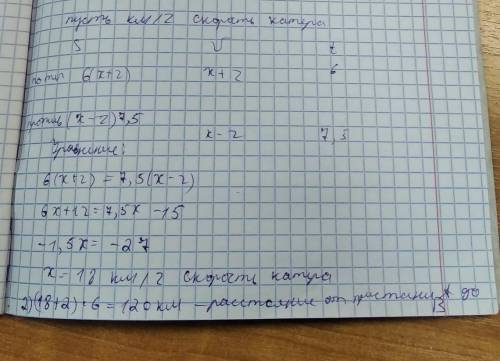 пусть км/г скорать катера
S V t
6(x+2) x+2 6
против (x-2)7,5 x-2 7,5
Уравнение:
6(x+2) = 7,5(x-2)
6x+12=7,5x -15
-1,5x= -27
x=18 км/г скорать катера
2)(18+2)·6=120км -расстояние от пристани A до B